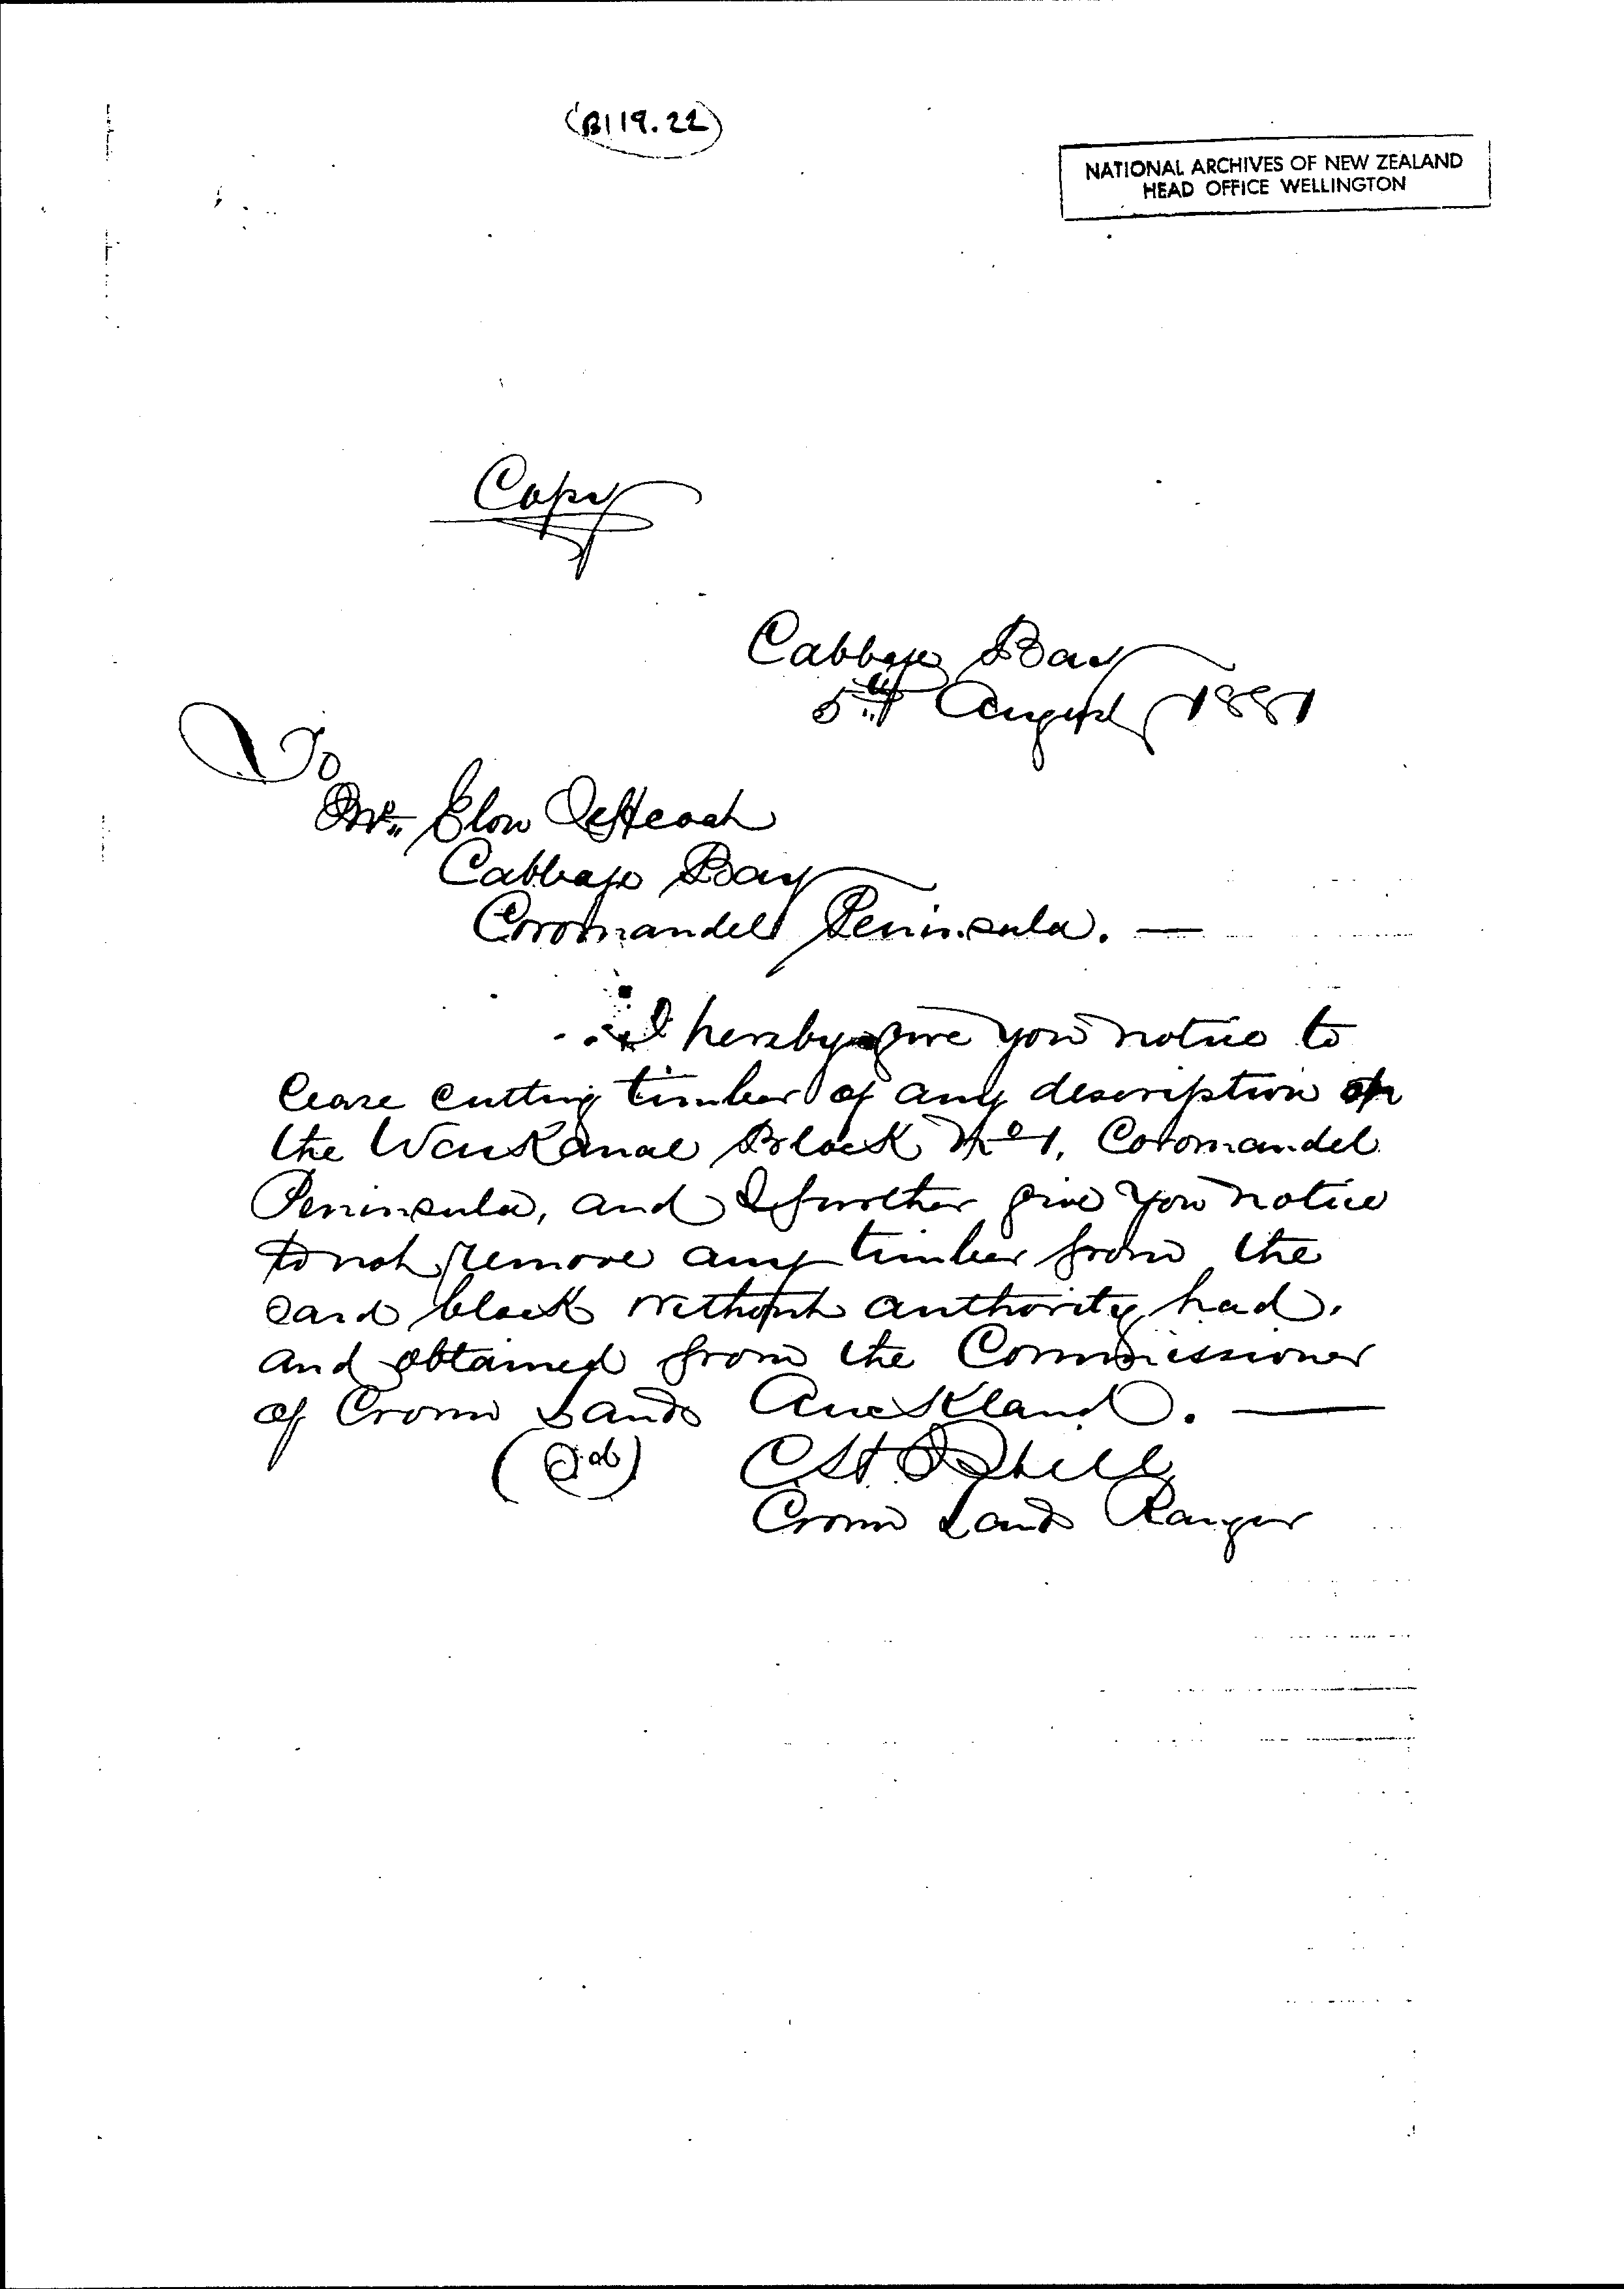 (B119.22)
NATIONAL ARCHIVES OF NEW ZEALAND
HEAD OFFICE WELLINGTON
Copy
Cabbage Bay
5th August 1881
To
Mr. Elon
Cabbage Bay
Coromandel Peninsula. —
I hereby give you notice to
cease cutting timber of any description on
the Block No 1, Coromandel
Peninsula, and I further give you notice
to not remove any timber from the
said block without authority had.
and obtained from the Commissioner
of Crown Lands Auckland. —
(Sgd)
Crown Lands Ranger